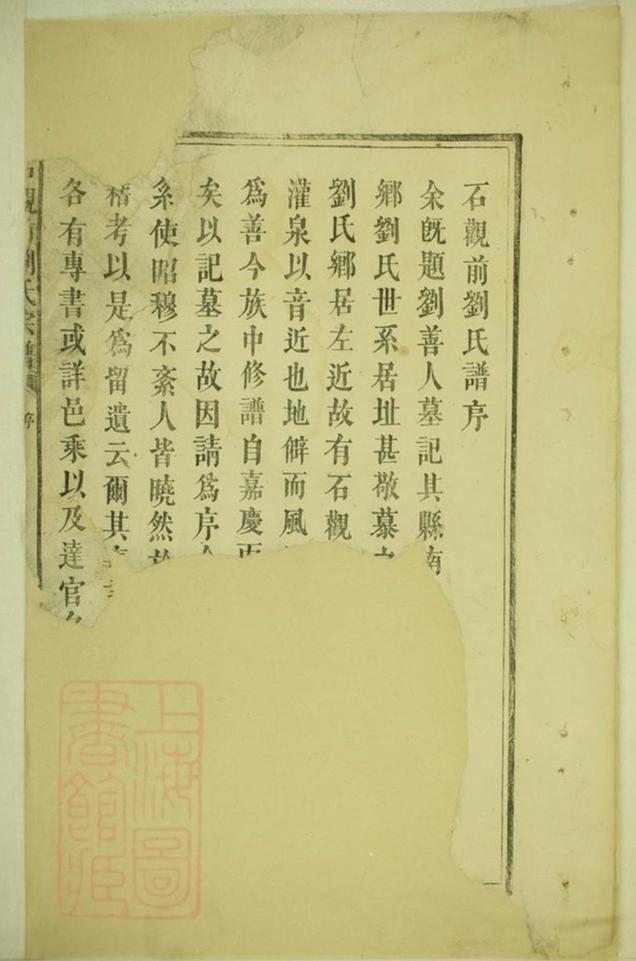 石觀前劉氏譜序
余旣題劉善人墓記其縣南
鄉劉氏世系居址甚敬慕之
劉氏鄉居左近故有石觀
灌泉以音近也地僻而風
爲善今族中修譜自嘉慶
矣以記墓之故因請爲序
系使昭穆不紊人皆曉然於
稽考以是爲留遺云爾其
各有專書或詳邑乘以及達官
觀前劉氏宗譜 序
上海圖
書館藏